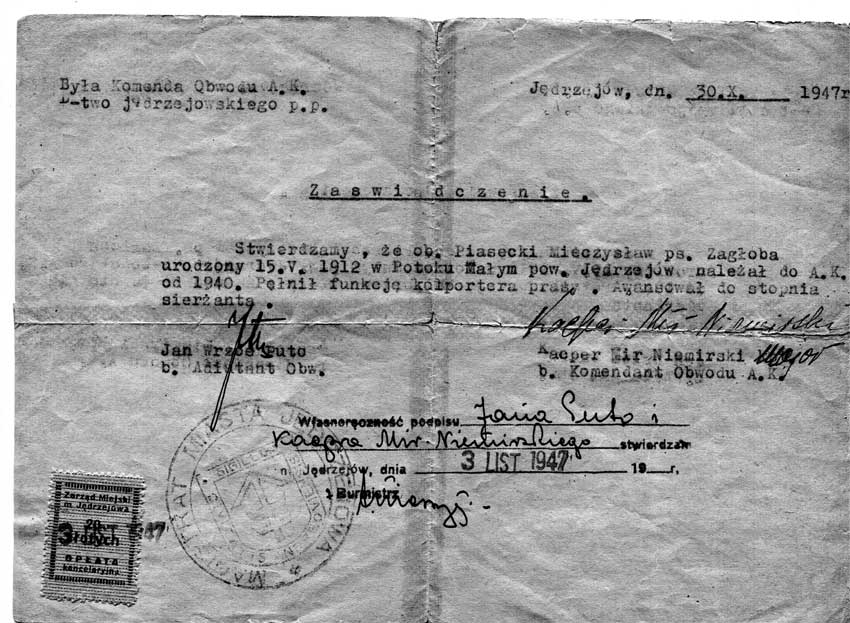 Była Komenda Obwodu A.K.
D-two jędrzejowskiego p.p.
Jędrzejów, dn. 30.X. 1947r
Zaswiadczenie.
Stwierdzamy, że ob. Piasecki Mieczysław ps. Zagłoba
urodzony 15.V. 1912 w Potoku Małym pow. Jędrzejów należał do A.K.
od 1940. Pełnił funkcję kolportera prasy. Awansował do stopnia
sierżanta.
Kacper Mir Niemirski
Jan Wrzos Puto
b. Adiutant Obw.
Kacper Mir Niemirski major
b. Komendant Obwodu A.K.
Własnoręczność podpisu Jana Puto i
Kacpra Mir-Niemirskiego stwierdzam
Jędrzejów, dnia 3 LIST 1947 19 r.
Burmistrz
MAGISTRAT MIASTA JĘDRZEJOWA
Zarząd Miejski
m Jędrzejowa
20
złotych
OPŁATA
kancelaryjna